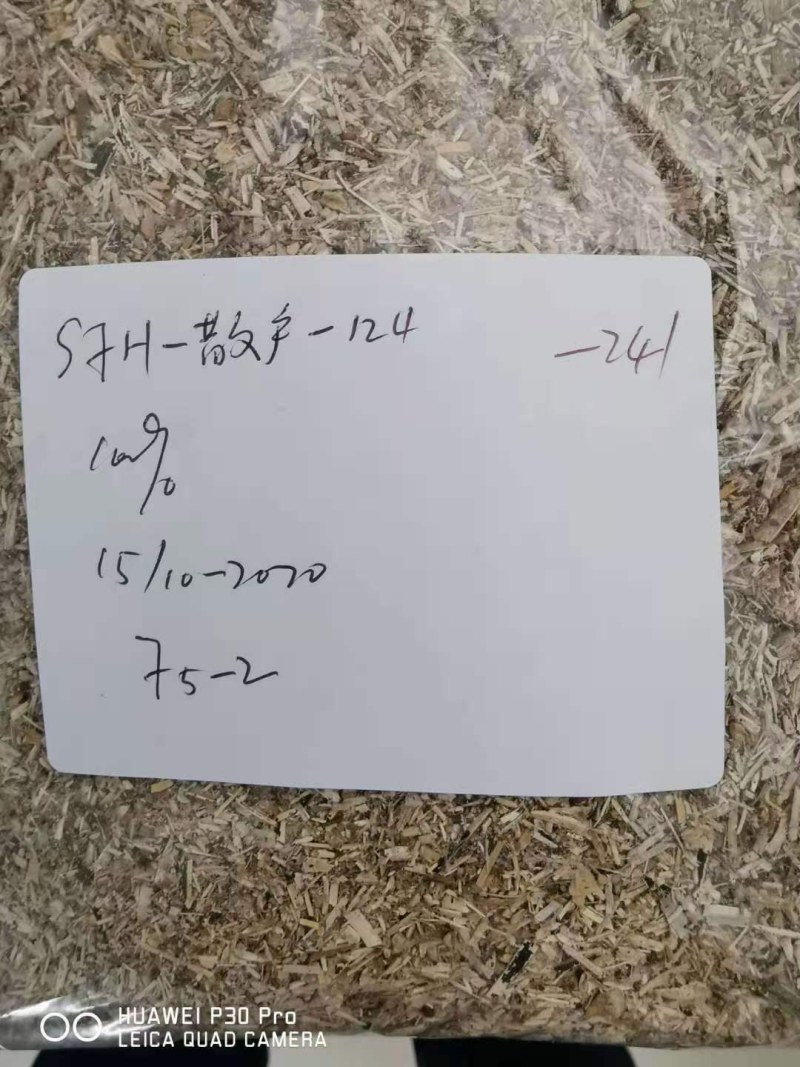 SFH-散户-124 -241
10%
15/10-2020
75-2
HUAWEI P30 Pro
LEICA QUAD CAMERA